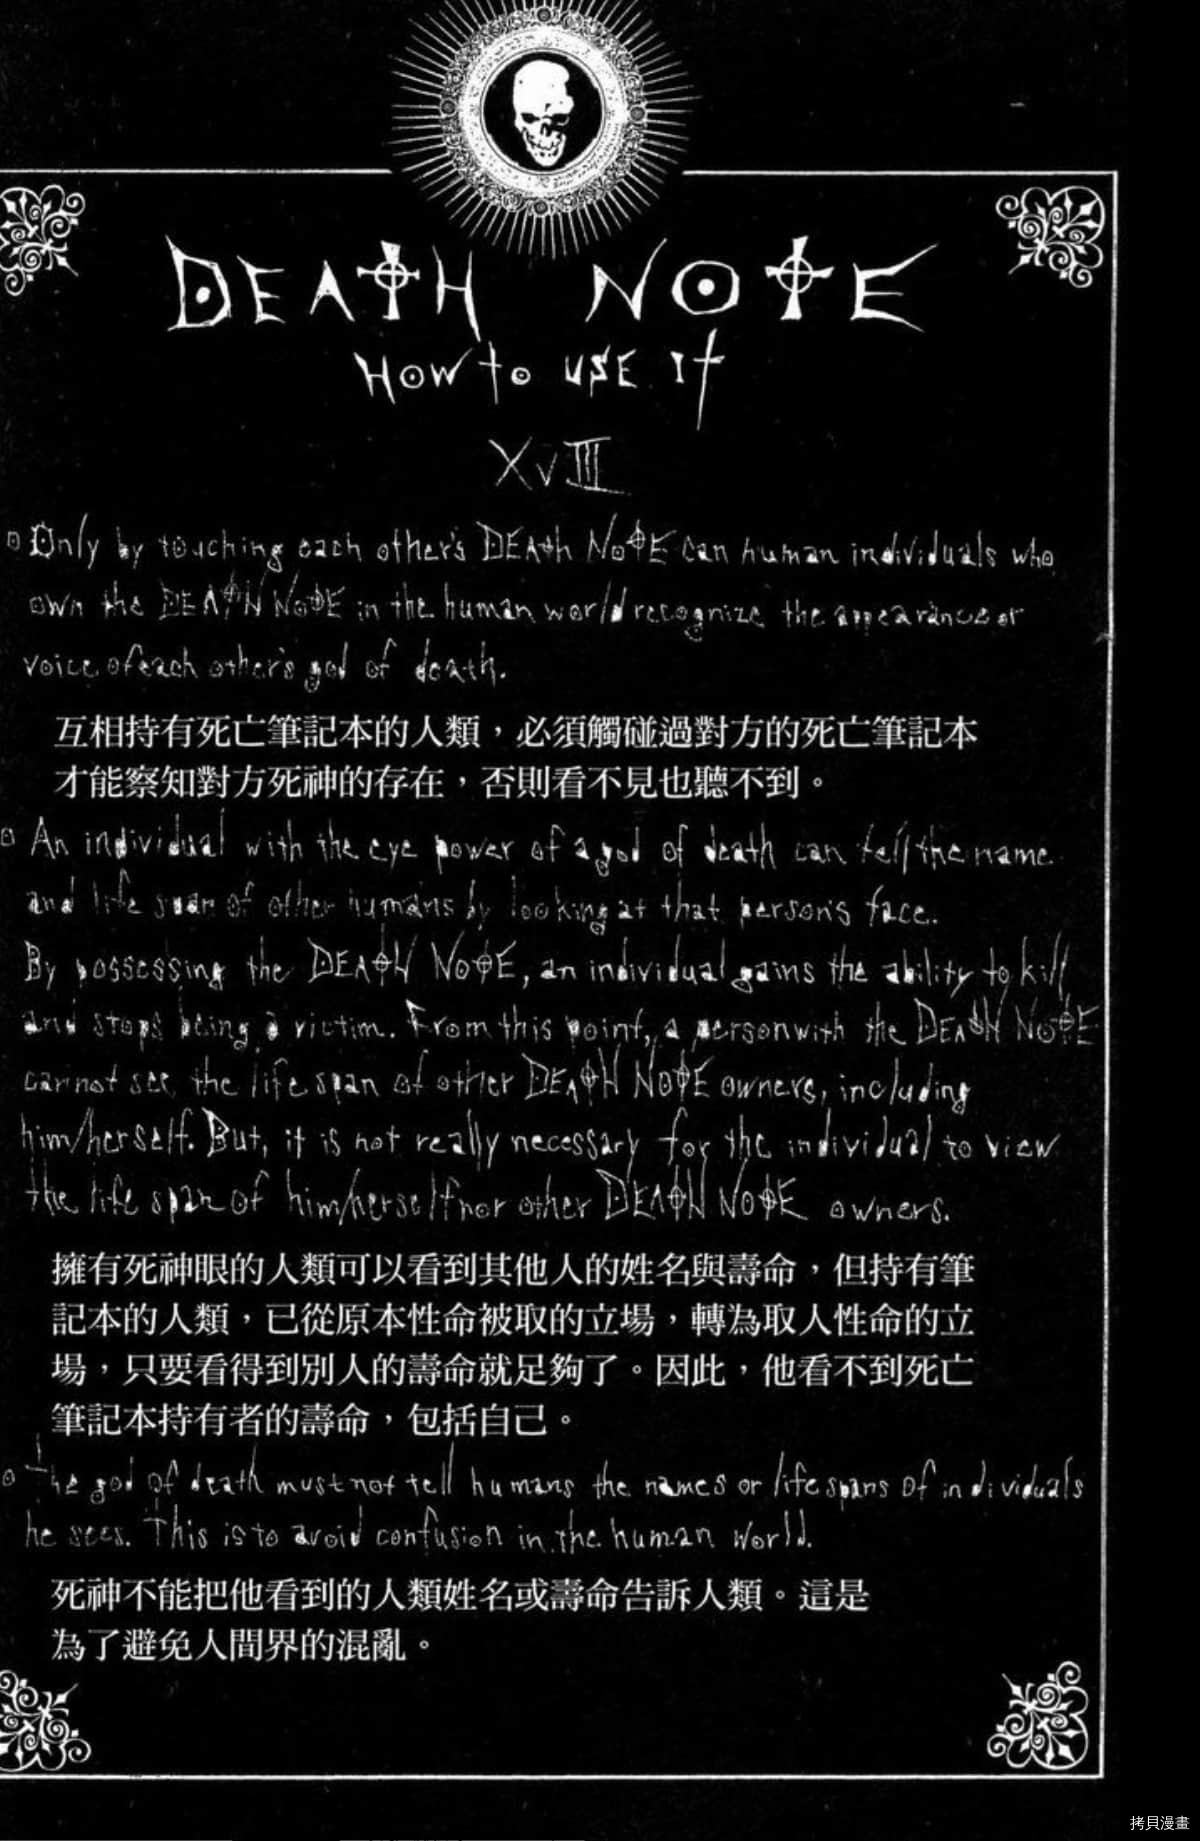 DEATH NOTE
HOW TO USE IT
XVIII
Only by touching each other's DEATH NOTE can human individuals who
own the DEATH NOTE in the human world recognize the appearance or
voice of each other's god of death.
互相持有死亡筆記本的人類，必須觸碰過對方的死亡筆記本
才能察知對方死神的存在，否則看不見也聽不到。
An individual with the eye power of a god of death can tell the name
and life span of other humans by looking at that person's face.
By possessing the DEATH NOTE, an individual gains the ability to kill
and stops being a victim. From this point, a person with the DEATH NOTE
cannot see the life span of other DEATH NOTE owners, including
him/herself. But, it is not really necessary for the individual to view
the life span of him/herself nor other DEATH NOTE owners.
擁有死神眼的人類可以看到其他人的姓名與壽命，但持有筆
記本的人類，已從原本性命被取的立場，轉為取人性命的立
場，只要看得到別人的壽命就足夠了。因此，他看不到死亡
筆記本持有者的壽命，包括自己。
The god of death must not tell humans the names or life spans of individuals
he sees. This is to avoid confusion in the human world.
死神不能把他看到的人類姓名或壽命告訴人類。這是
為了避免人間界的混亂。
拷貝漫畫